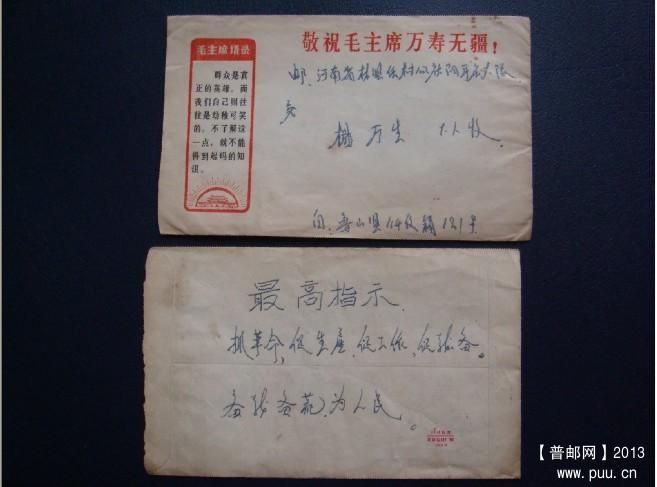 敬祝毛主席万寿无疆！
毛主席语录
群众是真
正的英雄，而
我们自己则往
往是幼稚可笑
的，不了解这
一点，就不能
得到起码的知
识。
邮、河南省林县任村公社阳耳庄大队
交
万生 大人收
自、鲁山县14收箱121号
最高指示
抓革命，促生产，促工作，促战备。
备战备荒，为人民。
【普邮网】2013
www.puu.cn